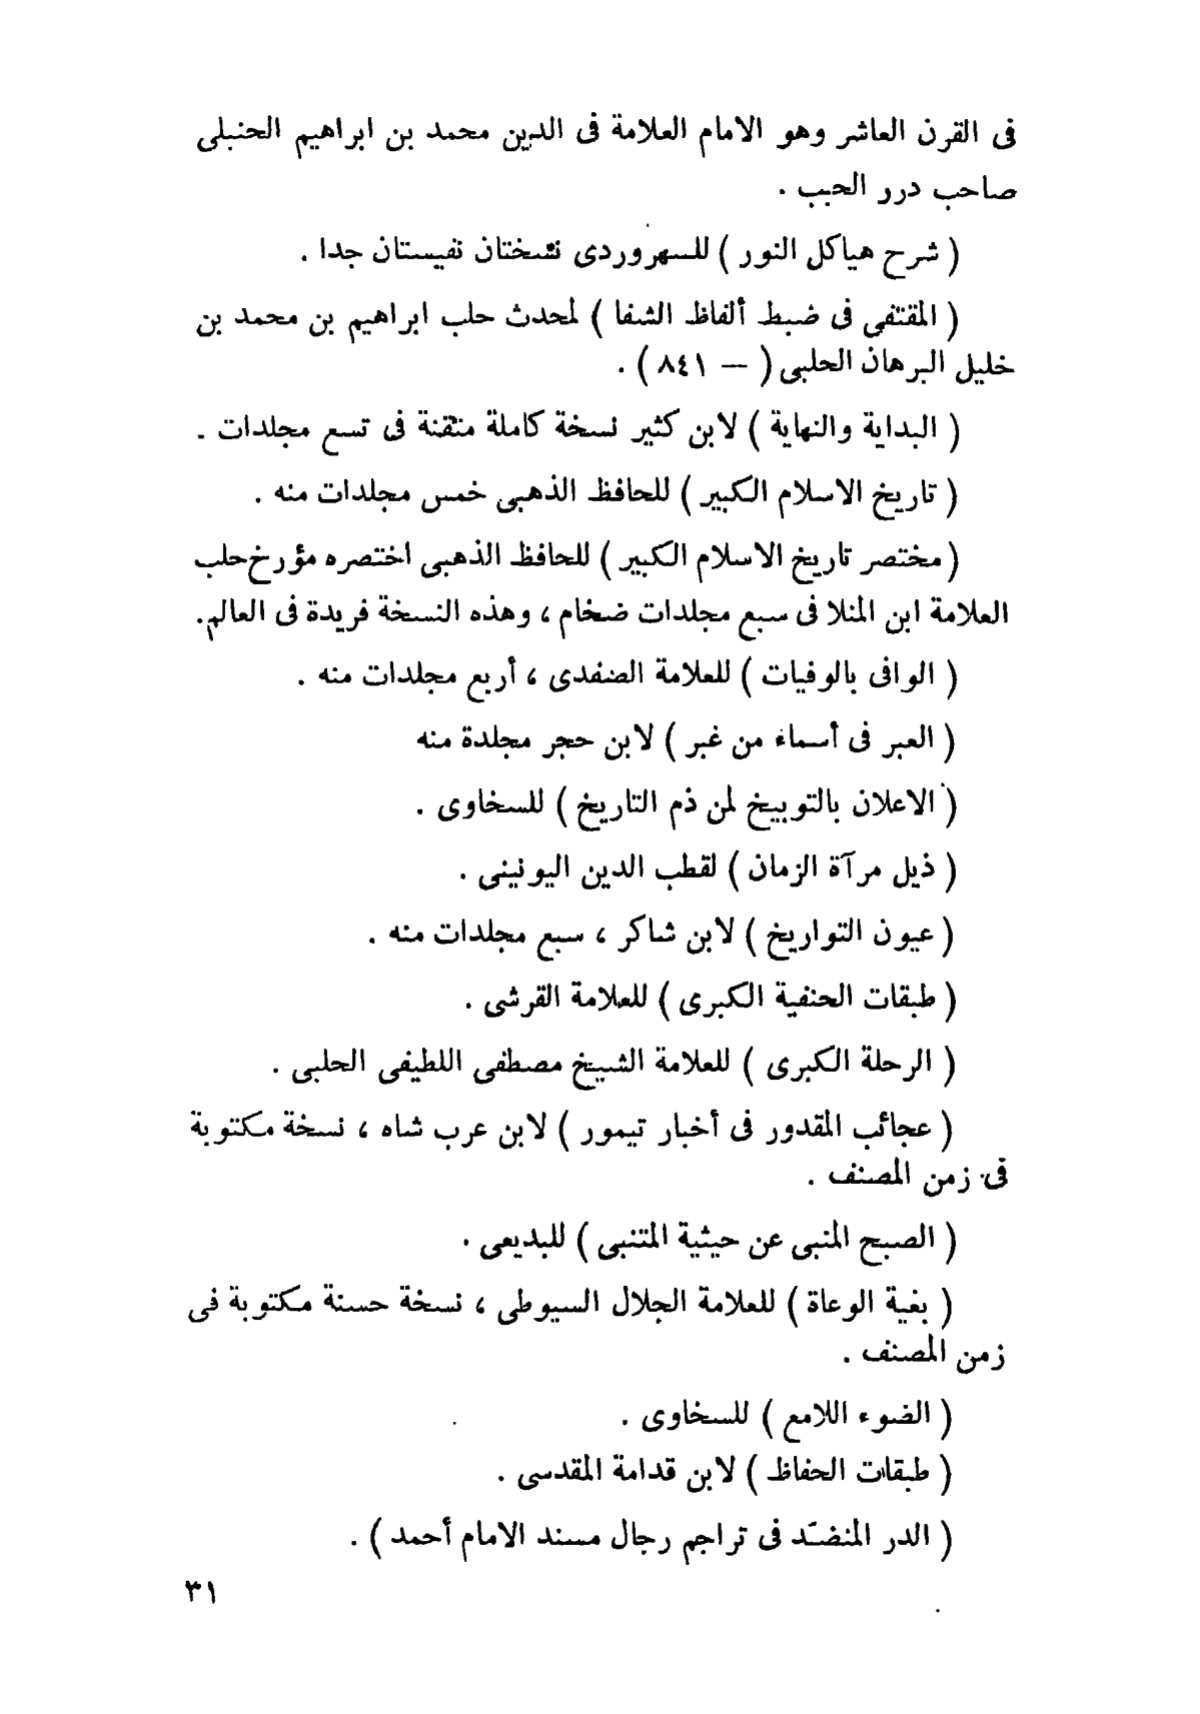 فى القرن العاشر وهو الامام العلامة فى الدين محمد بن ابراهيم الحنبلى
صاحب درر الحبب .
( شرح هياكل النور ) للسهروردى نسختان نفيستان جدا .
( المقتفى فى ضبط ألفاظ الشفا ) لمحدث حلب ابراهيم بن محمد بن
خليل البرهان الحلبى ( — ٨٤١ ) .
( البداية والنهاية ) لابن كثير نسخة كاملة متقنة فى تسع مجلدات .
( تاريخ الاسلام الكبير ) للحافظ الذهبى خمس مجلدات منه .
( مختصر تاريخ الاسلام الكبير ) للحافظ الذهبى اختصره مؤرخ حلب
العلامة ابن المنلا فى سبع مجلدات ضخام ، وهذه النسخة فريدة فى العالم.
( الوافى بالوفيات ) للعلامة الصفدى ، أربع مجلدات منه .
( العبر فى أسماء من غبر ) لابن حجر مجلدة منه
( الاعلان بالتوبيخ لمن ذم التاريخ ) للسخاوى .
( ذيل مرآة الزمان ) لقطب الدين اليونينى .
( عيون التواريخ ) لابن شاكر ، سبع مجلدات منه .
( طبقات الحنفية الكبرى ) للعلامة القرشى .
( الرحلة الكبرى ) للعلامة الشيخ مصطفى اللطيفى الحلبى .
( عجائب المقدور فى أخبار تيمور ) لابن عرب شاه ، نسخة مكتوبة
فى زمن المصنف .
( الصبح المنبى عن حيثية المتنبى ) للبديعى .
( بغية الوعاة ) للعلامة الجلال السيوطى ، نسخة حسنة مكتوبة فى
زمن المصنف .
( الضوء اللامع ) للسخاوى .
( طبقات الحفاظ ) لابن قدامة المقدسى .
( الدر المنضّد فى تراجم رجال مسند الامام أحمد ) .
٣١